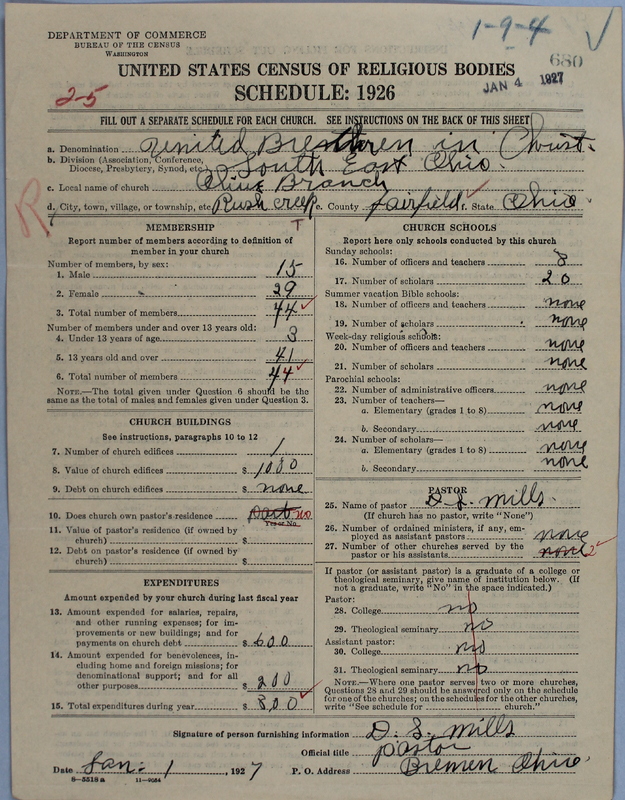 DEPARTMENT OF COMMERCE
BUREAU OF THE CENSUS
WASHINGTON
1-9-4
680
JAN 4 1927
2-5
UNITED STATES CENSUS OF RELIGIOUS BODIES
SCHEDULE: 1926
FILL OUT A SEPARATE SCHEDULE FOR EACH CHURCH. SEE INSTRUCTIONS ON THE BACK OF THIS SHEET
a. Denomination United Brethren in Christ.
b. Division (Association, Conference, Diocese, Presbytery, Synod, etc.) South East Ohio.
c. Local name of church Olive Branch
d. City, town, village, or township, etc. Rush creek e. County fairfield f. State Ohio
R
T
MEMBERSHIP
Report number of members according to definition of
member in your church
Number of members, by sex:
1. Male 15
2. Female 29
3. Total number of members 44
Number of members under and over 13 years old:
4. Under 13 years of age 3
5. 13 years old and over 41
6. Total number of members 44
NOTE.—The total given under Question 6 should be the
same as the total of males and females given under Question 3.
CHURCH BUILDINGS
See instructions, paragraphs 10 to 12
7. Number of church edifices 1
8. Value of church edifices $ 1000
9. Debt on church edifices $ none
10. Does church own pastor's residence no
Yes or No
11. Value of pastor's residence (if owned by
church) $
12. Debt on pastor's residence (if owned by
church) $
EXPENDITURES
Amount expended by your church during last fiscal year
13. Amount expended for salaries, repairs,
and other running expenses; for im-
provements or new buildings; and for
payments on church debt $ 600
14. Amount expended for benevolences, in-
cluding home and foreign missions; for
denominational support; and for all
other purposes $ 200
15. Total expenditures during year $ 800
CHURCH SCHOOLS
Report here only schools conducted by this church
Sunday schools:
16. Number of officers and teachers 8
17. Number of scholars 20
Summer vacation Bible schools:
18. Number of officers and teachers none
19. Number of scholars none
Week-day religious schools:
20. Number of officers and teachers none
21. Number of scholars none
Parochial schools:
22. Number of administrative officers none
23. Number of teachers—
a. Elementary (grades 1 to 8) none
b. Secondary none
24. Number of scholars—
a. Elementary (grades 1 to 8) none
b. Secondary none
PASTOR
25. Name of pastor D. S. Mills.
(If church has no pastor, write "None")
26. Number of ordained ministers, if any, em-
ployed as assistant pastors none
27. Number of other churches served by the
pastor or his assistants none 2
If pastor (or assistant pastor) is a graduate of a college or
theological seminary, give name of institution below. (If
not a graduate, write "No" in the space indicated.)
Pastor:
28. College no
29. Theological seminary no
Assistant pastor:
30. College no
31. Theological seminary no
NOTE.—Where one pastor serves two or more churches,
Questions 28 and 29 should be answered only on the schedule
for one of the churches; on the schedules for the other churches,
write "See schedule for ............ church."
Signature of person furnishing information D. S. Mills
Official title pastor
Date Jan. 1, 1927 P. O. Address Bremen Ohio.
8-5518a 11-9034